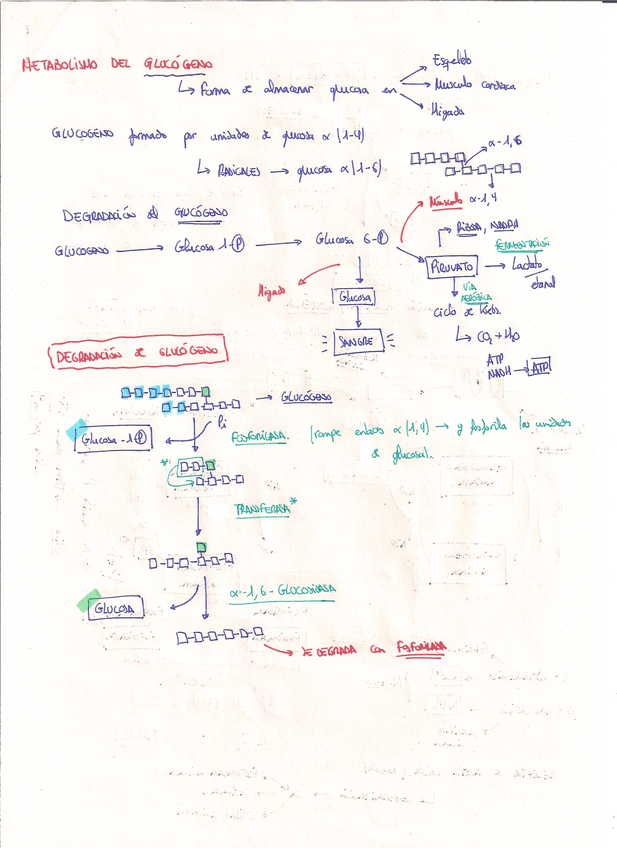 METABOLISMO DEL GLUCÓGENO
↳ Forma de almacenar glucosa en
Esqueleto
Musculo cardiaca
Higado
GLUCOGENO formado por unidades de glucosa α (1-4)
↳ RADICALES → glucosa α (1-6)
α-1,6
α-1,4
DEGRADACIÓN del GLUCÓGENO
Músculo
GLUCOGENO → Glucosa 1-P → Glucosa 6-P
RIBOSA, NADPH
PIRUVATO
FERMENTACIÓN
Lactato
etanol
Higado
Glucosa
VIA AERÓBICA
Ciclo de Krebs
SANGRE
↳ CO2 + H2O
ATP
NADH → ATP
DEGRADACIÓN de GLUCÓGENO
→ GLUCÓGENO
Glucosa-1-P
Pi
FOSFORILASA. (rompe enlaces α (1,4) → y fosforila las unidades
de glucosa).
*
TRANSFERASA*
α-1,6-GLUCOSIDASA
GLUCOSA
SE DEGRADA con FOSFORILASA